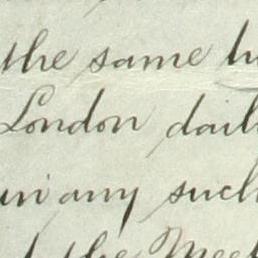 the same
London dail
in any such
the Meet